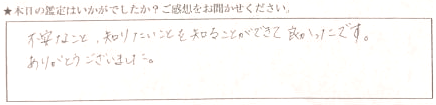 ★本日の鑑定はいかがでしたか？ご感想をお聞かせください。
不安なこと、知りたいことを知ることができて良かったです。
ありがとうございました。